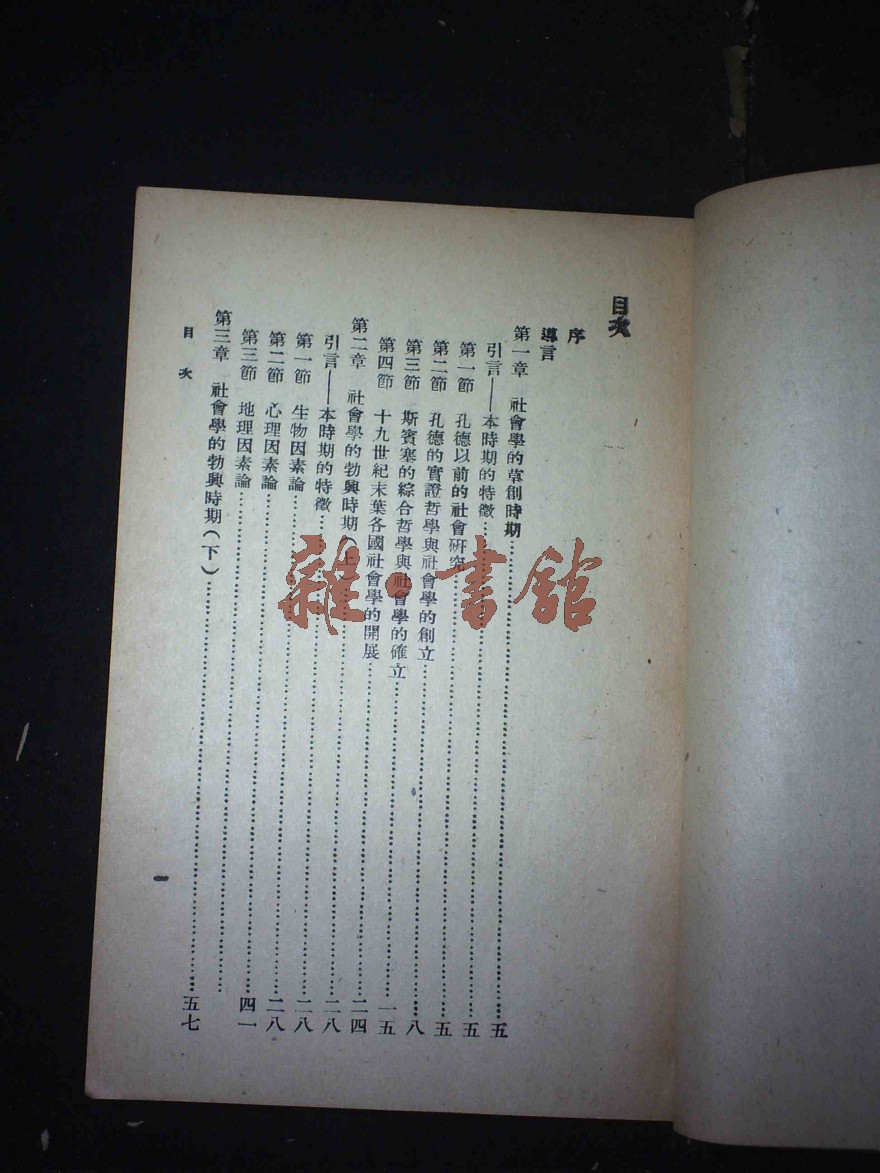 目次
序
導言
第一章 社會學的草創時期……五
引言——本時期的特徵……五
第一節 孔德以前的社會研究……五
第二節 孔德的實證哲學與社會學的創立……八
第三節 斯賓塞的綜合哲學與社會學的確立……一五
第四節 十九世紀末葉各國社會學的開展……二四
第二章 社會學的勃興時期(上)……二八
引言——本時期的特徵……二八
第一節 生物因素論……二八
第二節 心理因素論……四一
第三節 地理因素論……
第三章 社會學的勃興時期(下)……五七
目次
一
雜·書館